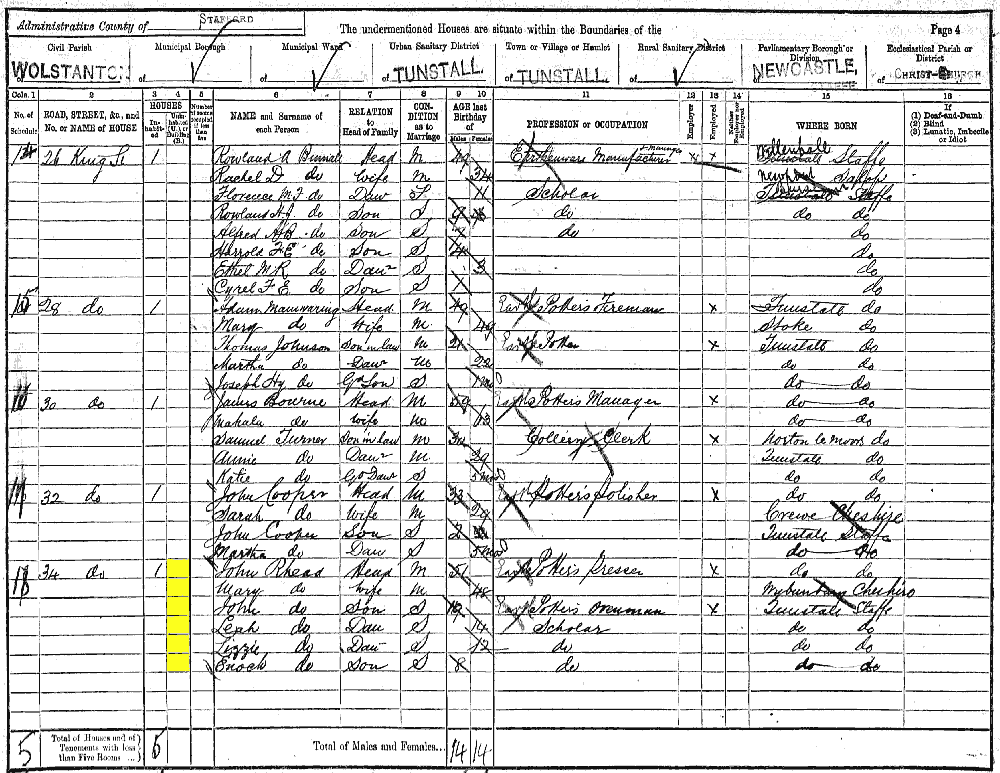 Administrative County of STAFFORD The undermentioned Houses are situate within the Boundaries of the Page 4
Civil Parish Municipal Borough Municipal Ward Urban Sanitary District Town or Village or Hamlet Rural Sanitary District Parliamentary Borough or Division Ecclesiastical Parish or District
of WOLSTANTON of of of TUNSTALL of TUNSTALL of of NEWCASTLE of CHRIST-CHURCH
Cols. 1 2 3 4 5 6 7 8 9 10 11 12 13 14 15 16
No. of Schedule ROAD, STREET, &c., and No. or NAME of HOUSE HOUSES Inhabited Uninhabited (U.) or Building (B.) Number of rooms occupied if less than five NAME and Surname of each Person RELATION to Head of Family CONDITION as to Marriage AGE last Birthday of Males Females PROFESSION or OCCUPATION Employer Employed Neither Employer nor Employed WHERE BORN If (1) Deaf-and-Dumb (2) Blind (3) Lunatic, Imbecile or Idiot
14 26 King St 1 Rowland A Head M 49 Earthenware Manufacturer Manager x Willenhall Staffs
Rachel D do Wife M 34 Newport Salop
Florence M.J. do Daur S 11 Scholar Tunstall Staffs
Rowland H.J. do Son S 9 do do do
Alfred do Son S 7 do do
Harrold F E do Son S 4 do
Ethel M R do Daur S 3 do
Cyrel F E do Son S 1 do
15 28 do 1 Adam Mainwaring Head M 49 Potters Fireman x Tunstall do
Mary do Wife M 49 Stoke do
Thomas Johnson Son in law M 21 Potter x Tunstall do
Martha do Daur M 22 do do
Joseph Hy do Gd Son S 1 mo do do
16 30 do 1 James Bourne Head M 59 Potters Manager x do do
Mahala do Wife M do do
Samuel Turner Son in law M 30 Colliery Clerk x Norton le Moors do
Annie do Daur M 29 Tunstall do
Katie do Gd Daur S 5 mos do do
17 32 do 1 John Cooper Head M 33 Potter's Polisher x do do
Sarah do Wife M 29 Crewe Cheshire
John Cooper Son S 2 Tunstall Staffs
Martha do Daur S 5 mos do do
18 34 do 1 John Rhead Head M 51 Potter's Presser x do do
Mary do Wife M 48 Wybunbury Cheshire
John do Son S 19 Potters Ovenman x Tunstall Staffs
Leah do Dau S 14 Scholar do do
Lizzie do Daur S 12 do do do
Enoch do Son S 8 do do do
5 Total of Houses and of Tenements with less than Five Rooms ... 5 Total of Males and Females... 14 14